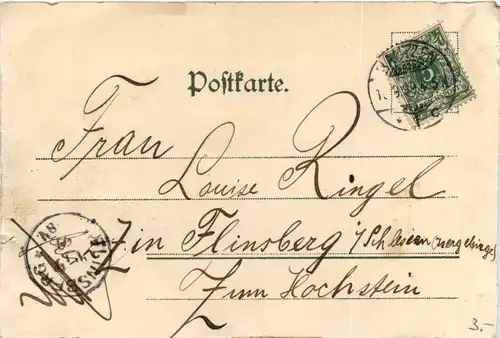 Postkarte.
Frau
Louise Ringel
in Flinsberg i/Schlesien (Isergebirge)
Zum Hochstein
3.-